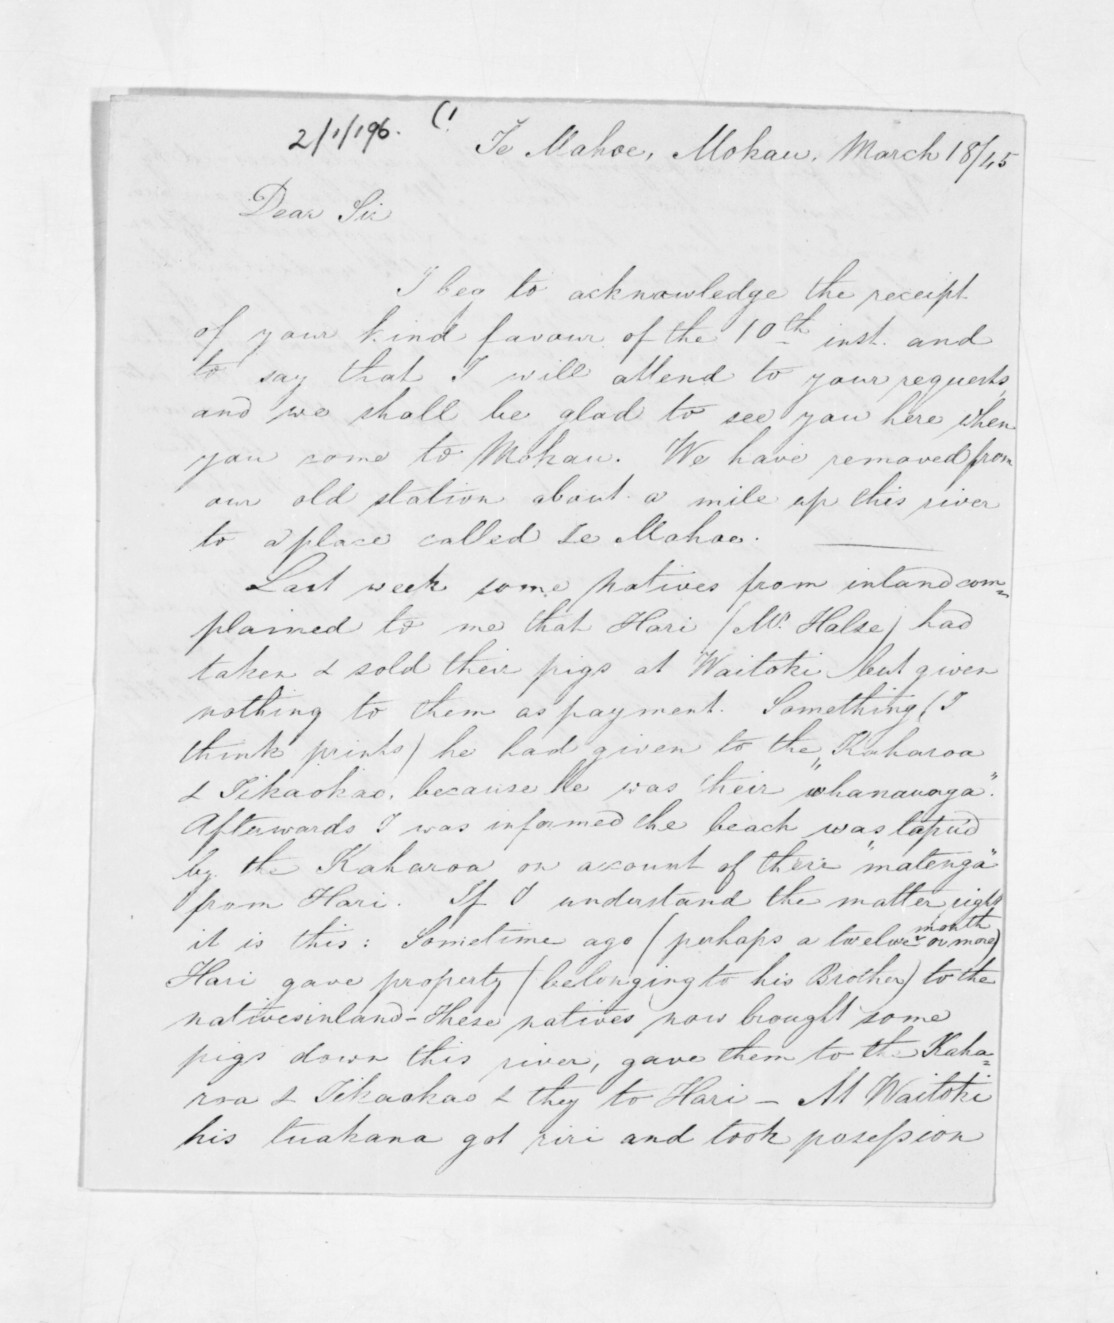 2/1/196. (1
Te Mahoe, Mokau, March 18/45
Dear Sir
I beg to acknowledge the receipt
of your kind favour of the 10th inst. and
to say that I will attend to your requests,
and we shall be glad to see you here when
you come to Mokau. We have removed from
our old station about a mile up this river
to a place called Te Mahoe.
Last week some natives from inland com=
plained to me that Hari (Mr. Halse) had
taken & sold their pigs at Waitoki but given
nothing to them as payment. Something (I
think prints) he had given to the Kaharoa
& Tikaokao, because he was their "whanaunga".
Afterwards I was informed the beach was tapu'd
by the Kaharoa on account of their "matenga"
from Hari. If I understand the matter right
it is this: Sometime ago (perhaps a twelve month or more)
Hari gave property (belonging to his Brother) to the
natives inland - These natives now brought some
pigs down this river, gave them to the Kaha=
roa & Tikaokao & they to Hari - At Waitoki
his tuakana got riri and took possession